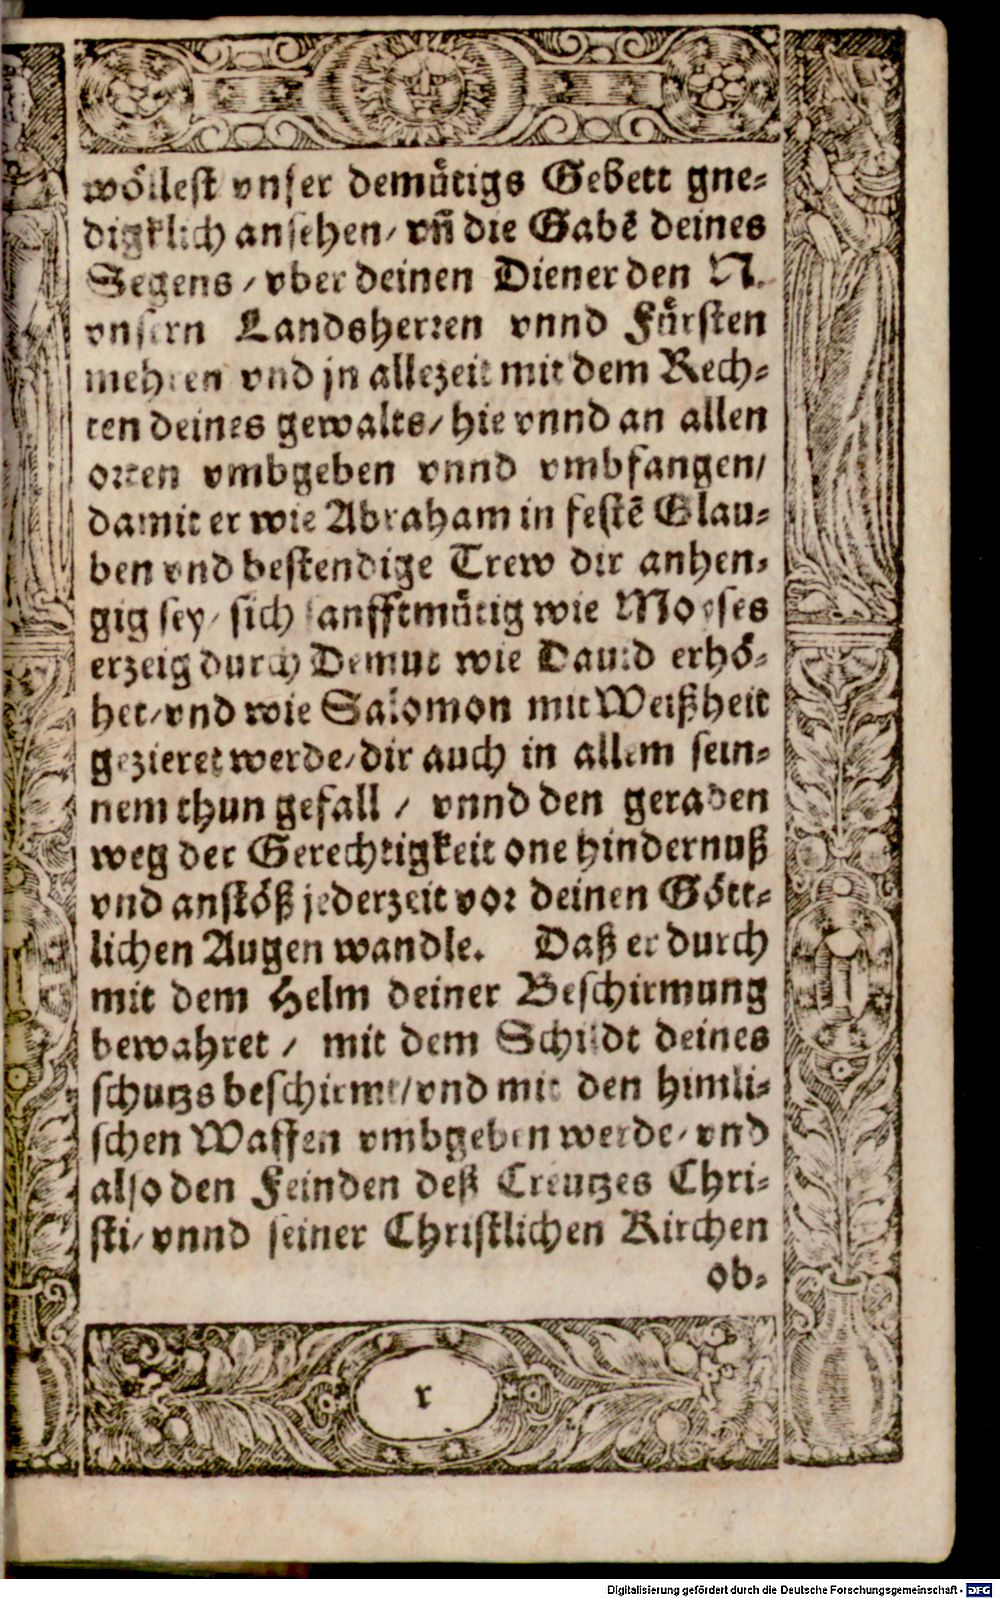 wöllest vnser demütigs Gebett gne-
digklich ansehen/ vñ die Gabē deines
Segens / vber deinen Diener den N.
vnsern Landsherren vnnd Fürsten
mehren vnd jn allezeit mit dem Rech-
ten deines gewalts/ hie vnnd an allen
orten vmbgeben vnnd vmbfangen/
damit er wie Abraham in festē Glau-
ben vnd bestendige Trew dir anhen-
gig sey/ sich sanfftmütig wie Moyses
erzeig durch Demut wie Dauid erhö-
het/ vnd wie Salomon mit Weißheit
gezieret werde/ dir auch in allem sein-
nem thun gefall / vnnd den geraden
weg der Gerechtigkeit one hindernuß
vnd anstöß jederzeit vor deinen Gött-
lichen Augen wandle. Daß er durch
mit dem Helm deiner Beschirmung
bewahret / mit dem Schildt deines
schutzs beschirmt/ vnd mit den himli-
schen Waffen vmbgeben werde/ vnd
also den Feinden deß Creutzes Chri-
sti/ vnnd seiner Christlichen Kirchen
ob-
r
Digitalisierung gefördert durch die Deutsche Forschungsgemeinschaft - DFG